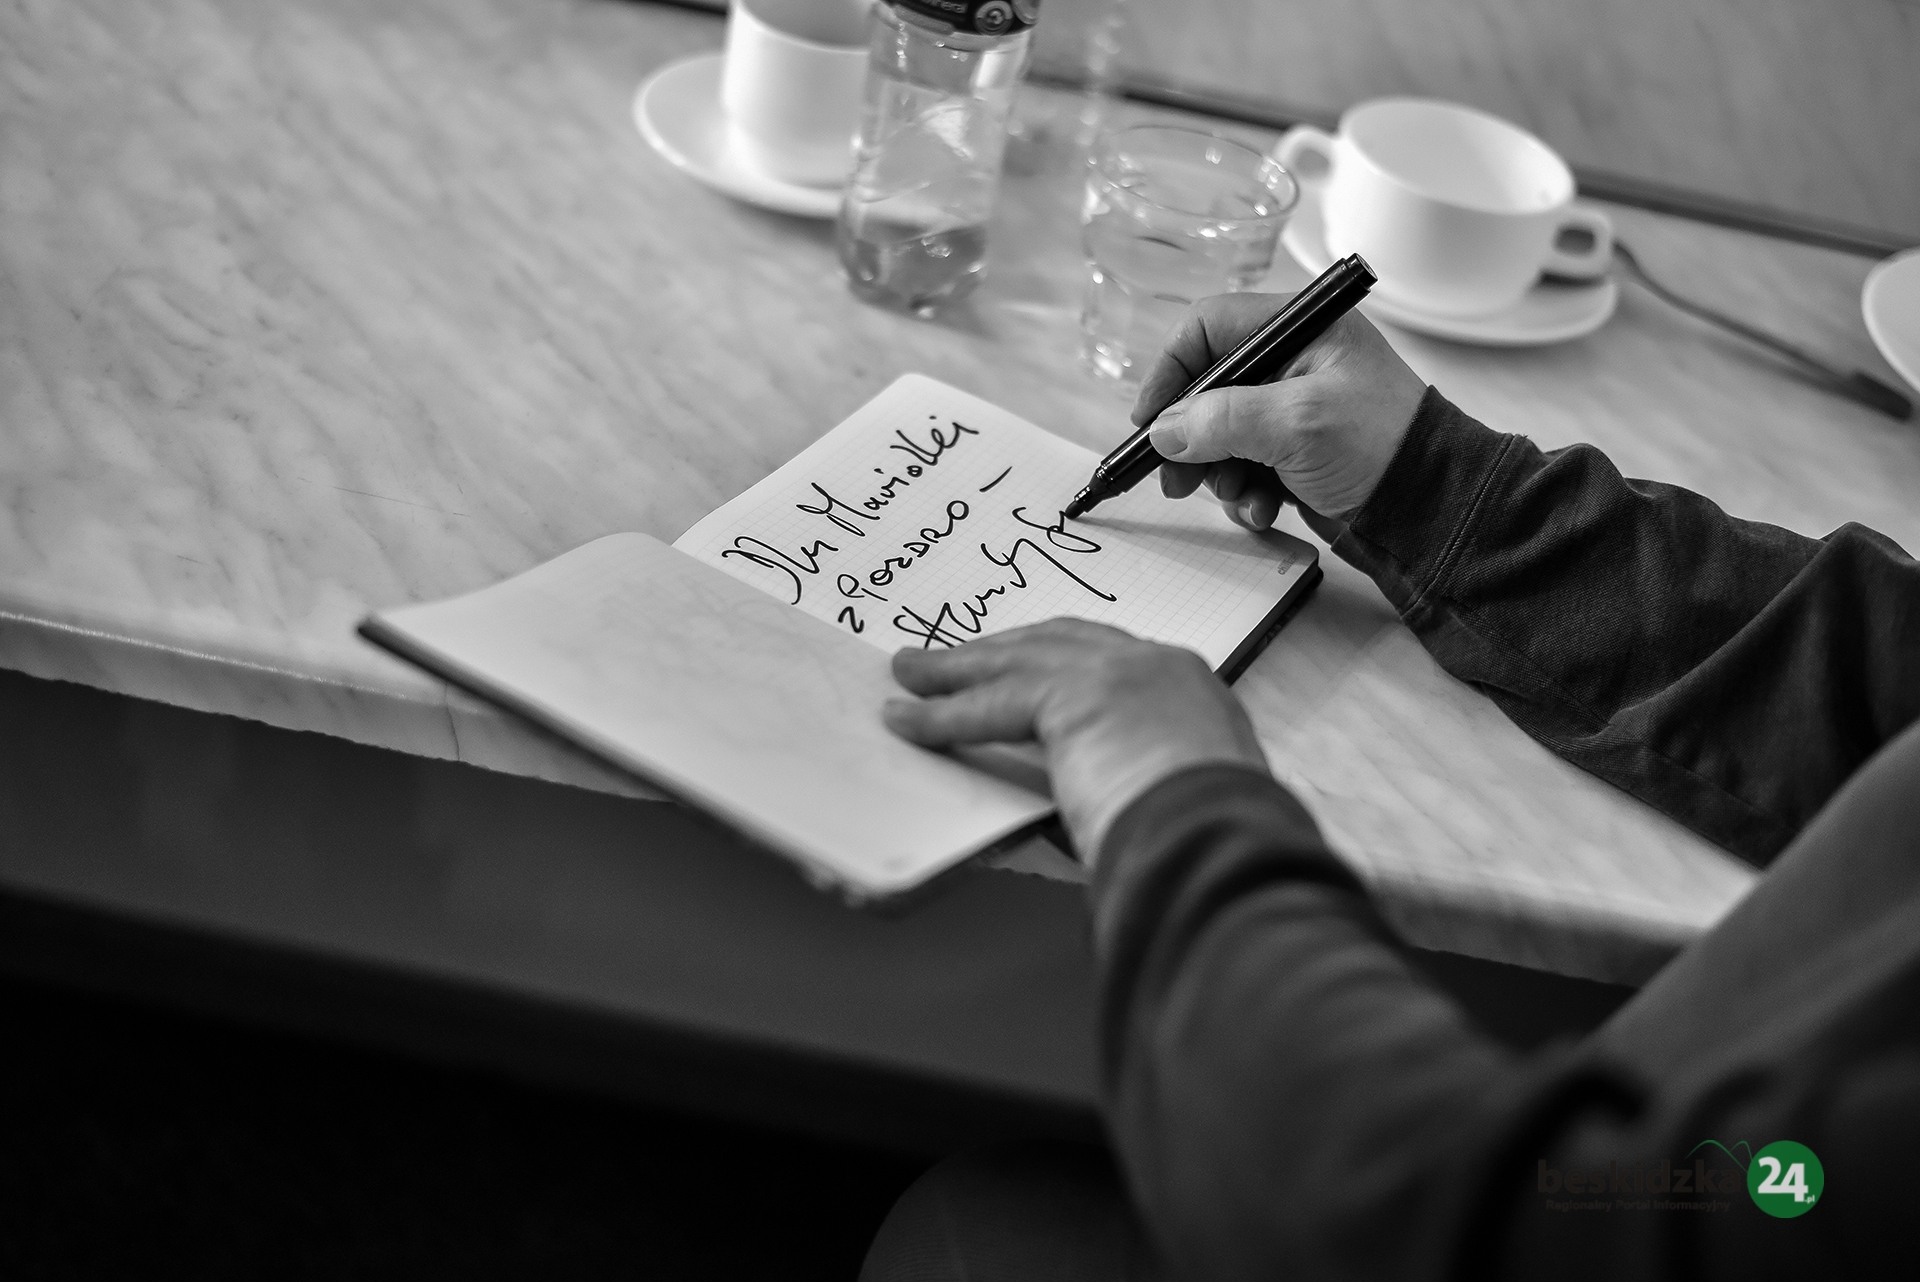 Dla Mariolki
z POZDRO –
beskidzka24.pl
Regionalny Portal Informacyjny